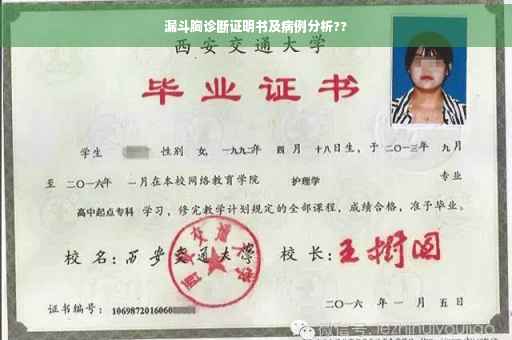 漏斗胸诊断证明书及病例分析??
西安交通大学
毕业证书
学生 性别 女, 一九九二年 四 月 十八日生, 于 二〇一三年 九月
至 二〇一六年 一月在本校网络教育学院 护理学 专业
高中起点专科 学习, 修完教学计划规定的全部课程, 成绩合格, 准予毕业。
校 名: 西安交通大学 校 长: 王树国
西安交通大学
证书编号: 1069872016060
二〇一六 年 一 月 五 日
微信号: jezhinuiyoujiao